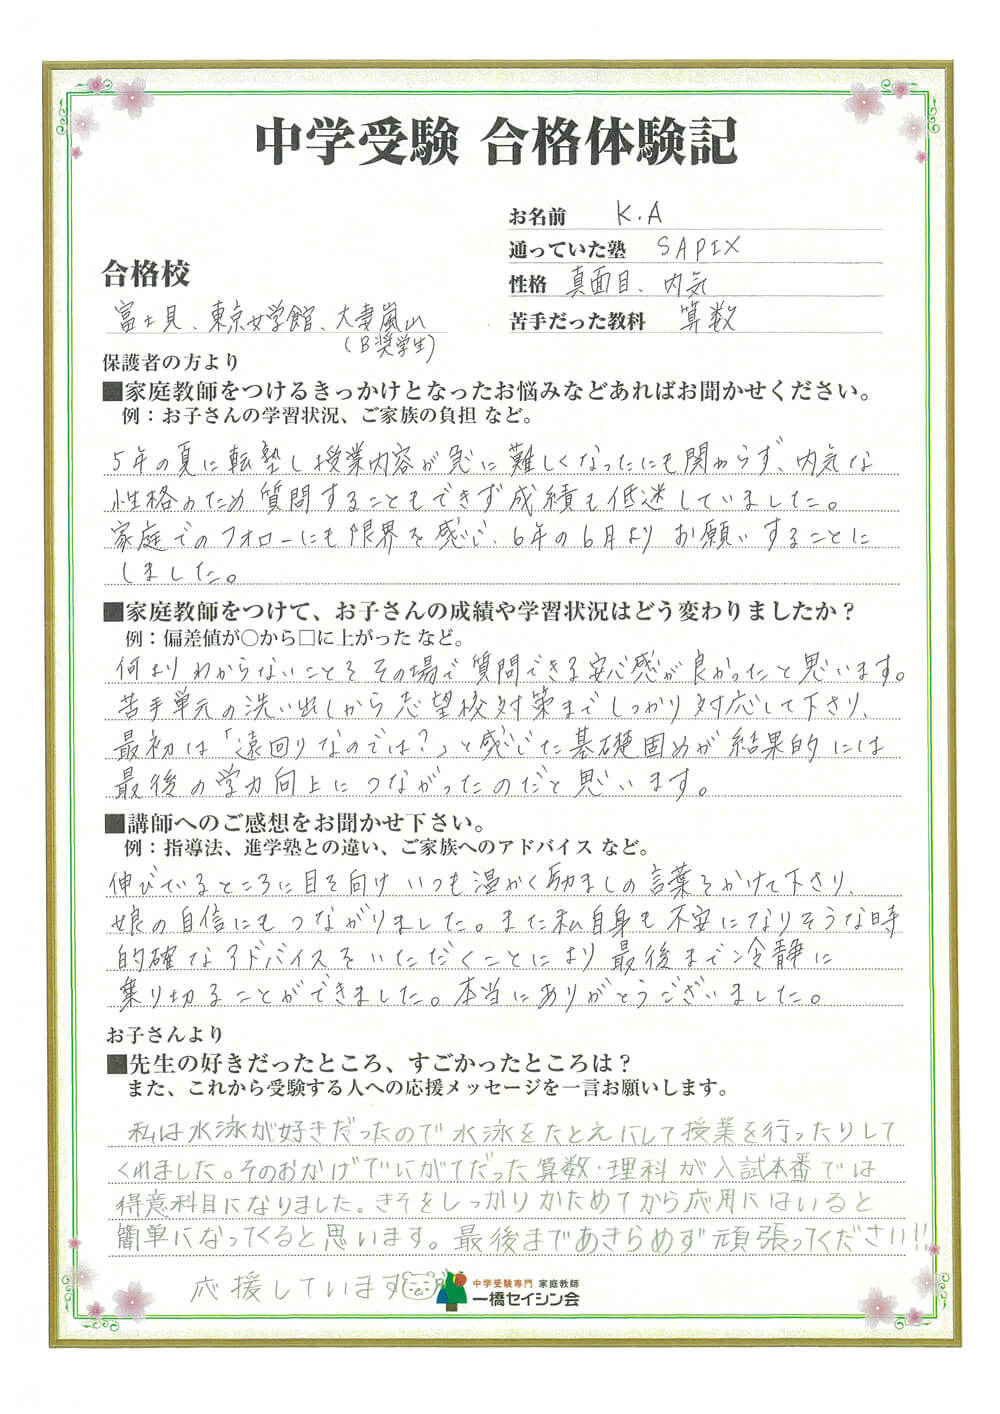 中学受験 合格体験記
お名前 K.A
通っていた塾 SAPIX
性格 真面目、内気
苦手だった教科 算数
合格校
富士見、東京女学館、大妻嵐山
(B奨学生)
保護者の方より
■家庭教師をつけるきっかけとなったお悩みなどあればお聞かせください。
例：お子さんの学習状況、ご家族の負担 など。
5年の夏に転塾し授業内容が急に難しくなったにも関わらず、内気な
性格のため質問することもできず成績も低迷していました。
家庭でのフォローにも限界を感じ、6年の6月よりお願いすることに
しました。
■家庭教師をつけて、お子さんの成績や学習状況はどう変わりましたか？
例：偏差値が○から□に上がった など。
何よりわからないことをその場で質問できる安心感が良かったと思います。
苦手単元の洗い出しから志望校対策までしっかり対応して下さり、
最初は「遠回りなのでは？」と感じた基礎固めが結果的には
最後の学力向上につながったのだと思います。
■講師へのご感想をお聞かせ下さい。
例：指導法、進学塾との違い、ご家族へのアドバイス など。
伸びているところに目を向けいつも温かく励ましの言葉をかけて下さり、
娘の自信にもつながりました。また私自身も不安になりそうな時
的確なアドバイスをいただくことにより最後まで冷静に
乗り切ることができました。本当にありがとうございました。
お子さんより
■先生の好きだったところ、すごかったところは？
また、これから受験する人への応援メッセージを一言お願いします。
私は水泳が好きだったので水泳をたとえにして授業を行ったりして
くれました。そのおかげでにがてだった算数・理科が入試本番では
得意科目になりました。きそをしっかりかためてから応用にはいると
簡単になってくると思います。最後まであきらめず頑張ってください!!
応援しています
中学受験専門 家庭教師
一橋セイシン会